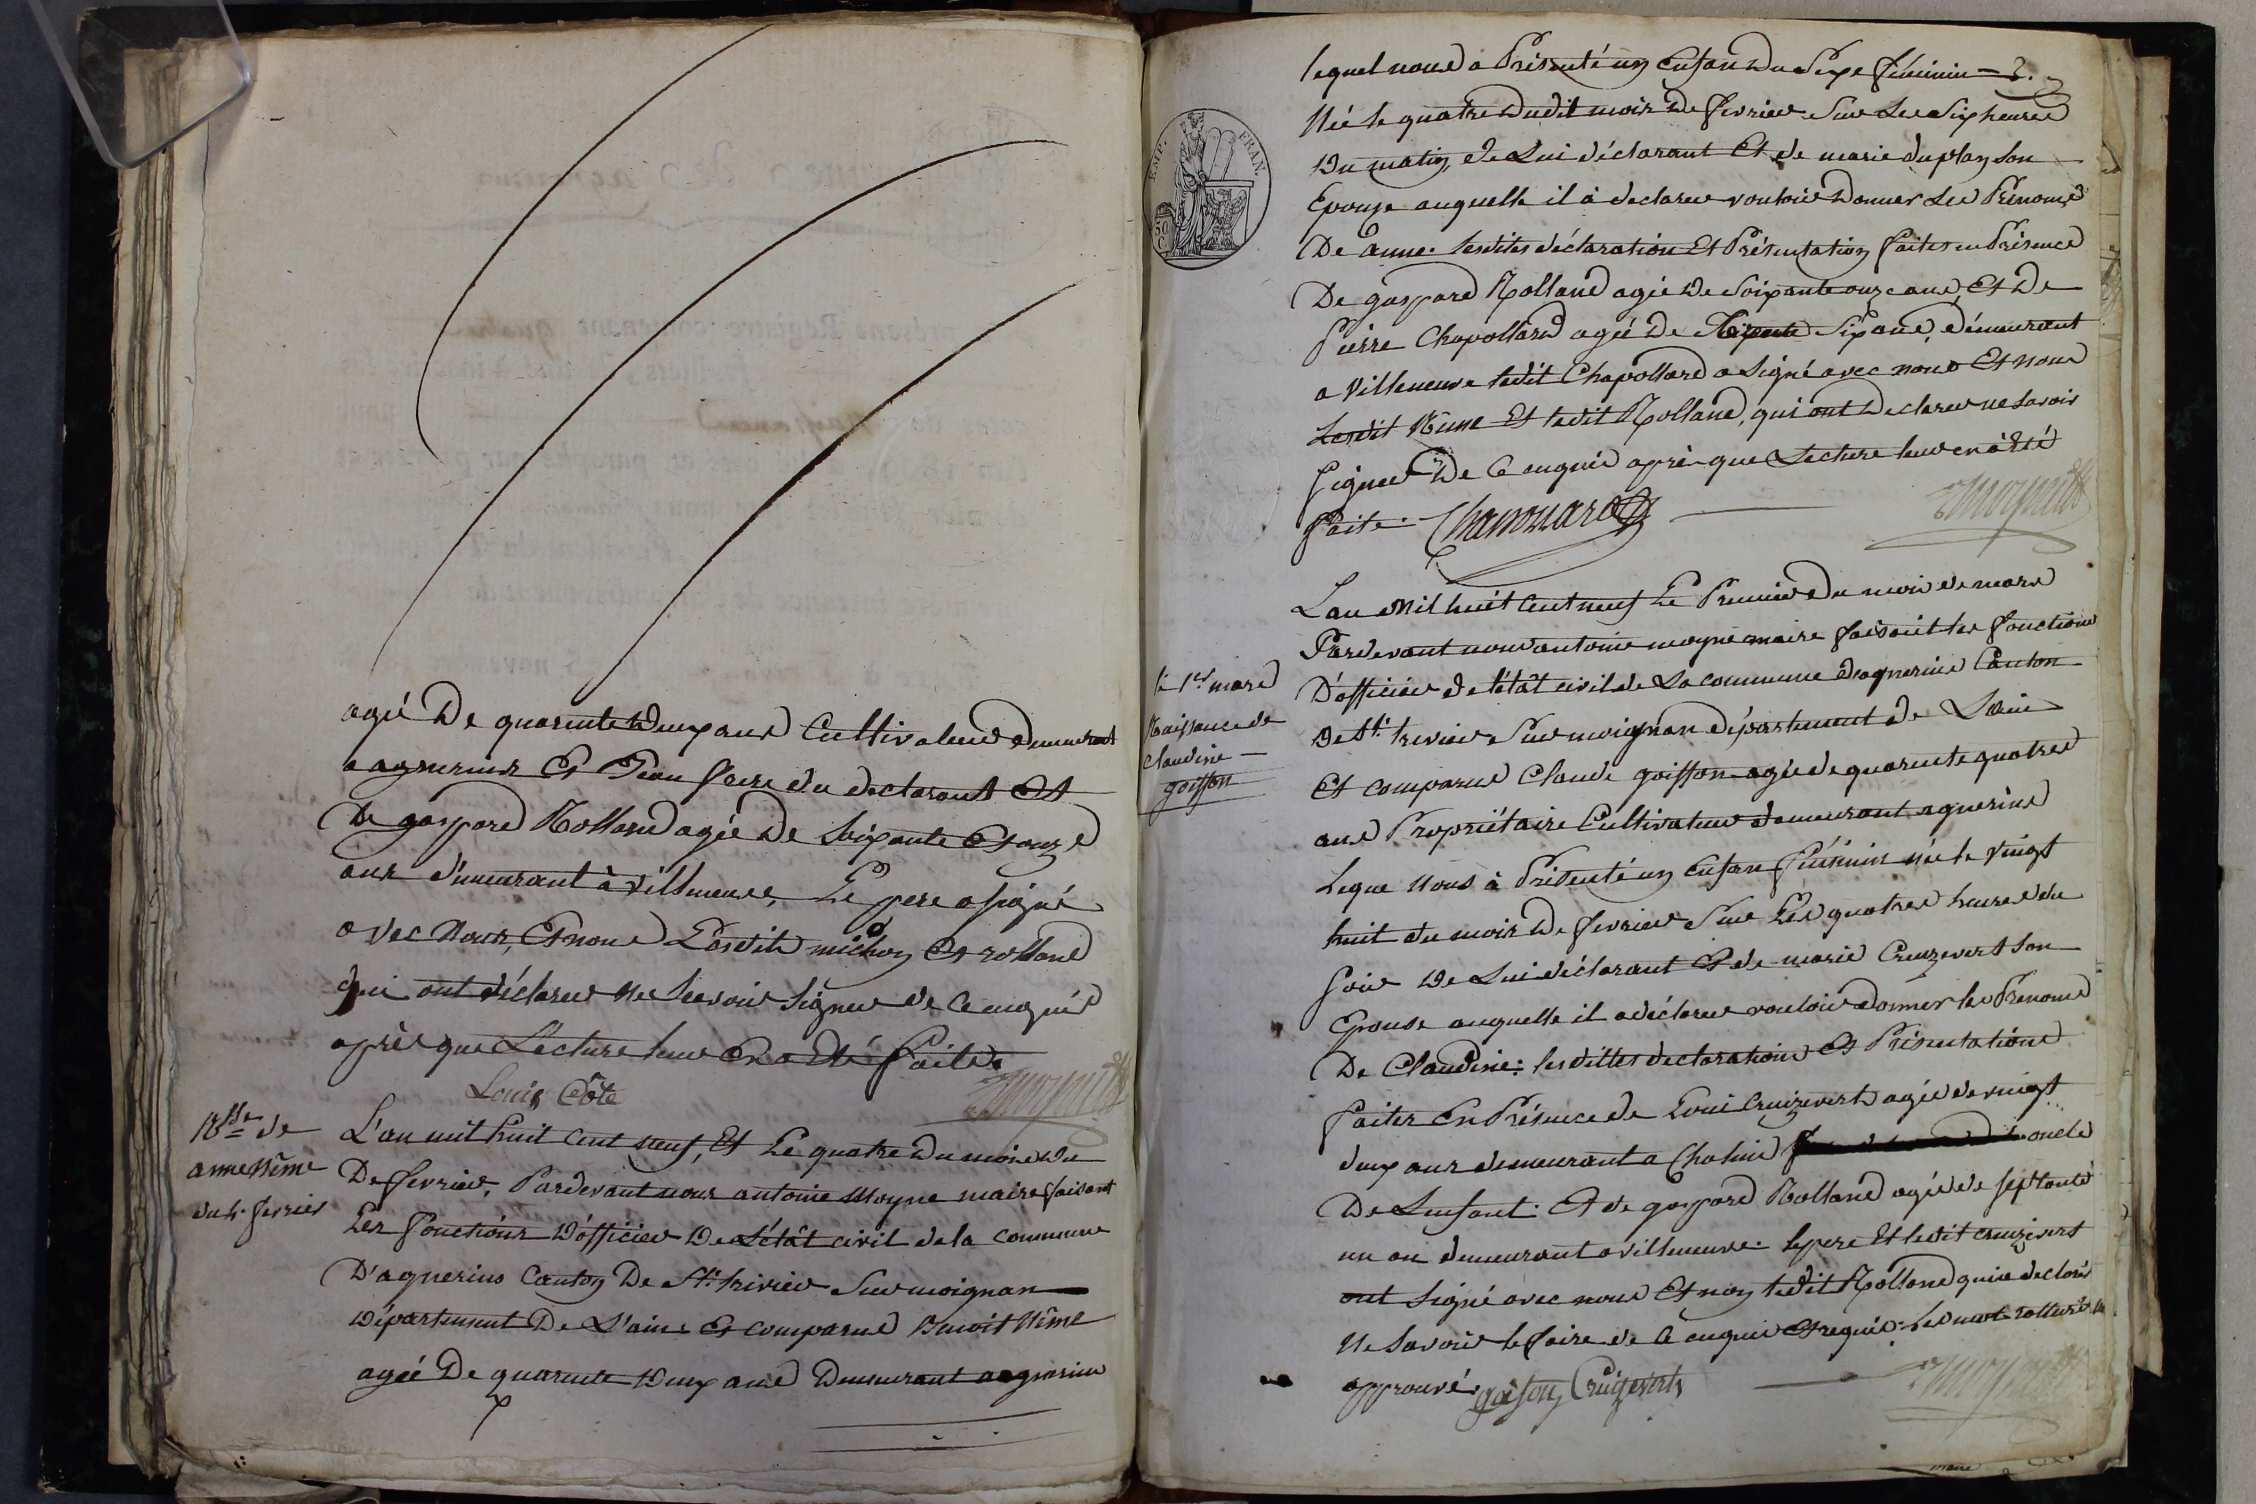 agé De quarante Deux ans Cultivateur demeurant
a agnerins Et Jean frere du declarant Et
De gaspard Rolland agée De soixante Et onze
ans demeurant à Villeneuve, Le pere a signé
avec Nous, Et non Lesdits michon Et rolland
qui ont déclarer Ne Scavoir signer de Ce enquis
après que Lecture leur En a Eté faite.
Louis Côte
18 de
anne Nême
du 4 fevrier
L'an mil huit Cent neuf, Et Le quatre Du mois du
De fevrier, Pardevant nous antoine Moyne maire faisant
Les fonctions D'officier De L'êtât civil de la commune
D'agnerins Canton De St. trivier Sur moignan
Département De L'ain Et comparus Benoit Nême
agée De quarente Deux ans Demeurant a agnerins
lequel nous a Présenté un Enfan Du Sexe féminin
Née le quatre Dudit mois De fevrier Sur Les Six heures
Du matin, de Lui déclarant Et de marie duplan son
Epouse auquelle il à declarer vouloir Donner Les Prénoms
De anne. lesdites déclaration Et Présentation faites en Présence
De gaspard Rolland agée De Soixante onze ans, Et De
Pierre Chapollard agé De Six ans, démeurant
a Villeneuve ledit Chapollard a Signé avec nous Et non
Lesdit Nême Et ledit Rolland, qui ont Declarer ne Savoir
Signer De Ce enquis après que Lecture leur en à Eté
faite. Chapollard
EMP. FRAN.
50 C
Le 1er mars
Naissance de
Claudine
goiffon
L'an Mil huit Cent neuf Le Premier du mois de mars
Pardevant nous antoine moyne maire faisait les fonctions
D'officier de l'êtât civil de La commune d'agnerins Canton
De St. trivier Sur moignan département de Lain
Et comparus Claude goiffon agée de quarente quatres
ans Propriétaire Cultivateur demeurant agnerins
Leque Nous à Présenté un Enfan Féminin née le vingt
huit du mois De fevrier Sur Les quatres heures du
soir De Lui déclarant Et de marie Cruzevert son
Epouse auquelle il a déclarer vouloir donner les Prenoms
De Claudine: lesdittes declaration Et Présentations
faites En Présence de Loui Cruizevert agée de vingt
deux ans demeurant a Chaleins oncle
De Lenfant: Et de gaspard Rolland agée de septante
un an demeurant a villeneuve. le pere Et ledit cruzivert
ont Signé avec nous Et non ledit Rolland qui a declaré
Ne Savoir le faire de Ce enquis et requis.
approuvé goifon Cruizevert